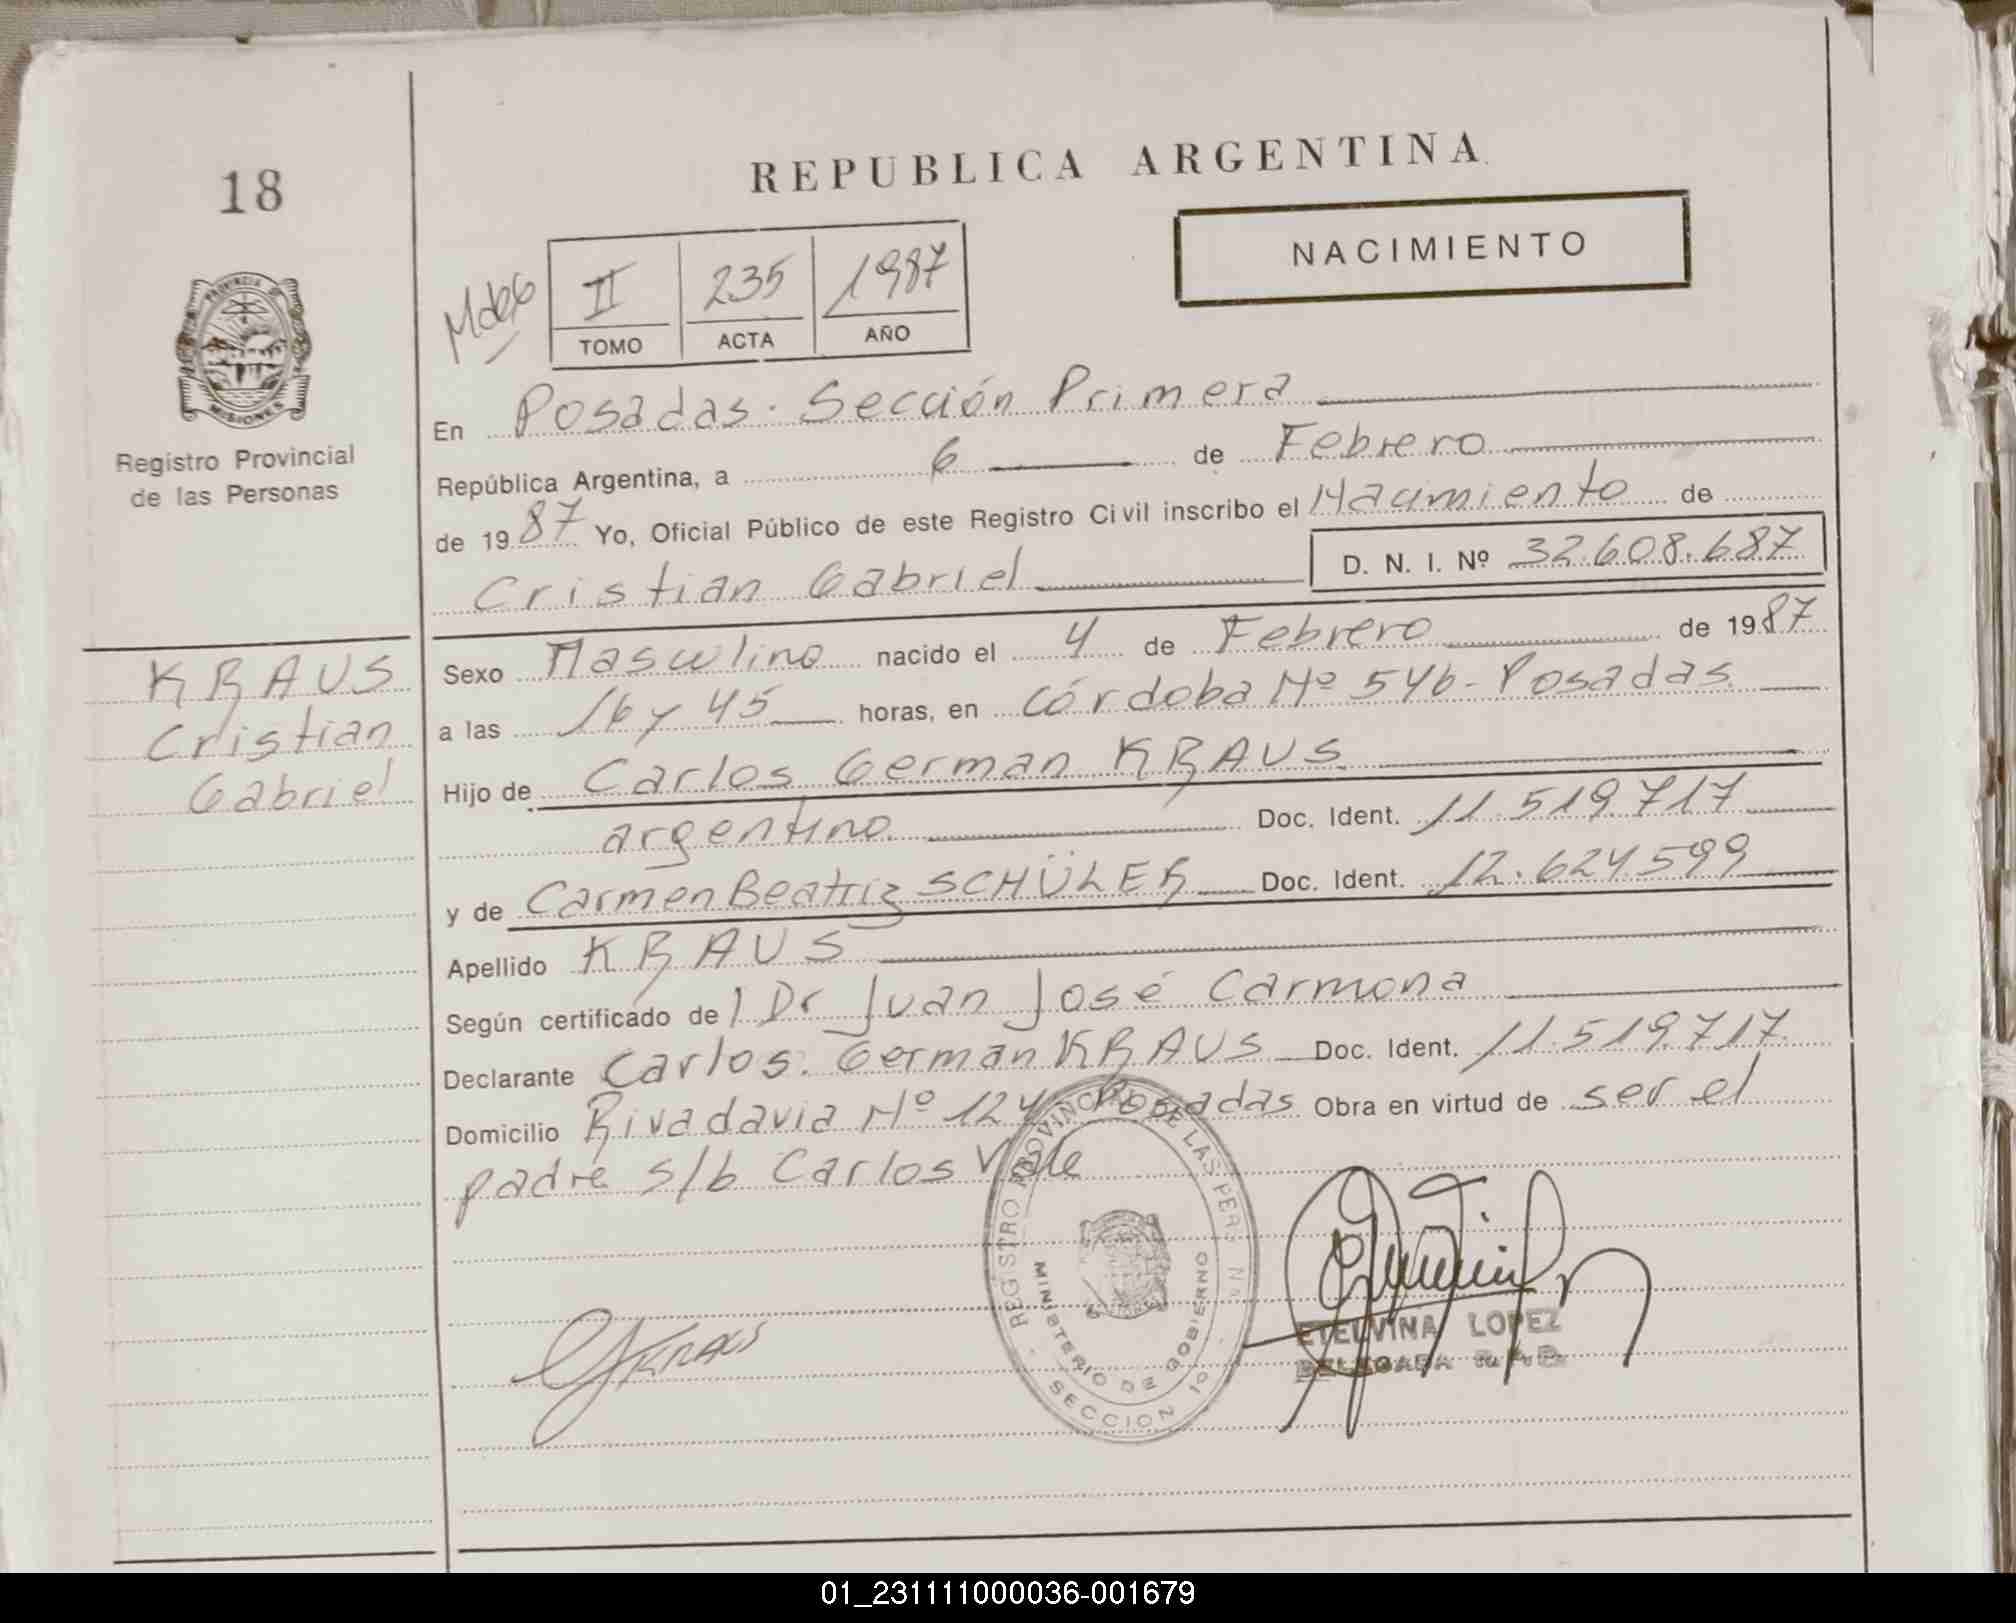 18
REPUBLICA ARGENTINA
NACIMIENTO
II 235 1987
TOMO ACTA AÑO
PROVINCIA DE
MISIONES
Registro Provincial
de las Personas
En Posadas. Sección Primera
República Argentina, a 6 de Febrero
de 1987 Yo, Oficial Público de este Registro Civil inscribo el Nacimiento de
Cristian Gabriel D. N. I. Nº 32.608.687
KRAUS
Cristian
Gabriel
Sexo Masculino nacido el 4 de Febrero de 1987
a las 16 y 45 horas, en Córdoba Nº 546 - Posadas
Hijo de Carlos German KRAUS
argentino Doc. Ident. 11.519.717
y de Carmen Beatriz SCHÜLER Doc. Ident. 12.624.599
Apellido KRAUS
Según certificado del Dr Juan José Carmona
Declarante Carlos German KRAUS Doc. Ident. 11.519.717
Domicilio Rivadavia Nº 124 - Posadas Obra en virtud de ser el
padre s/b Carlos Vale
REGISTRO PROVINCIAL DE LAS PERS
MINISTERIO DE GOBIERNO
SECCION 1o
KRAUS
ETELVINA LOPEZ
DELEGADA
01_231111000036-001679